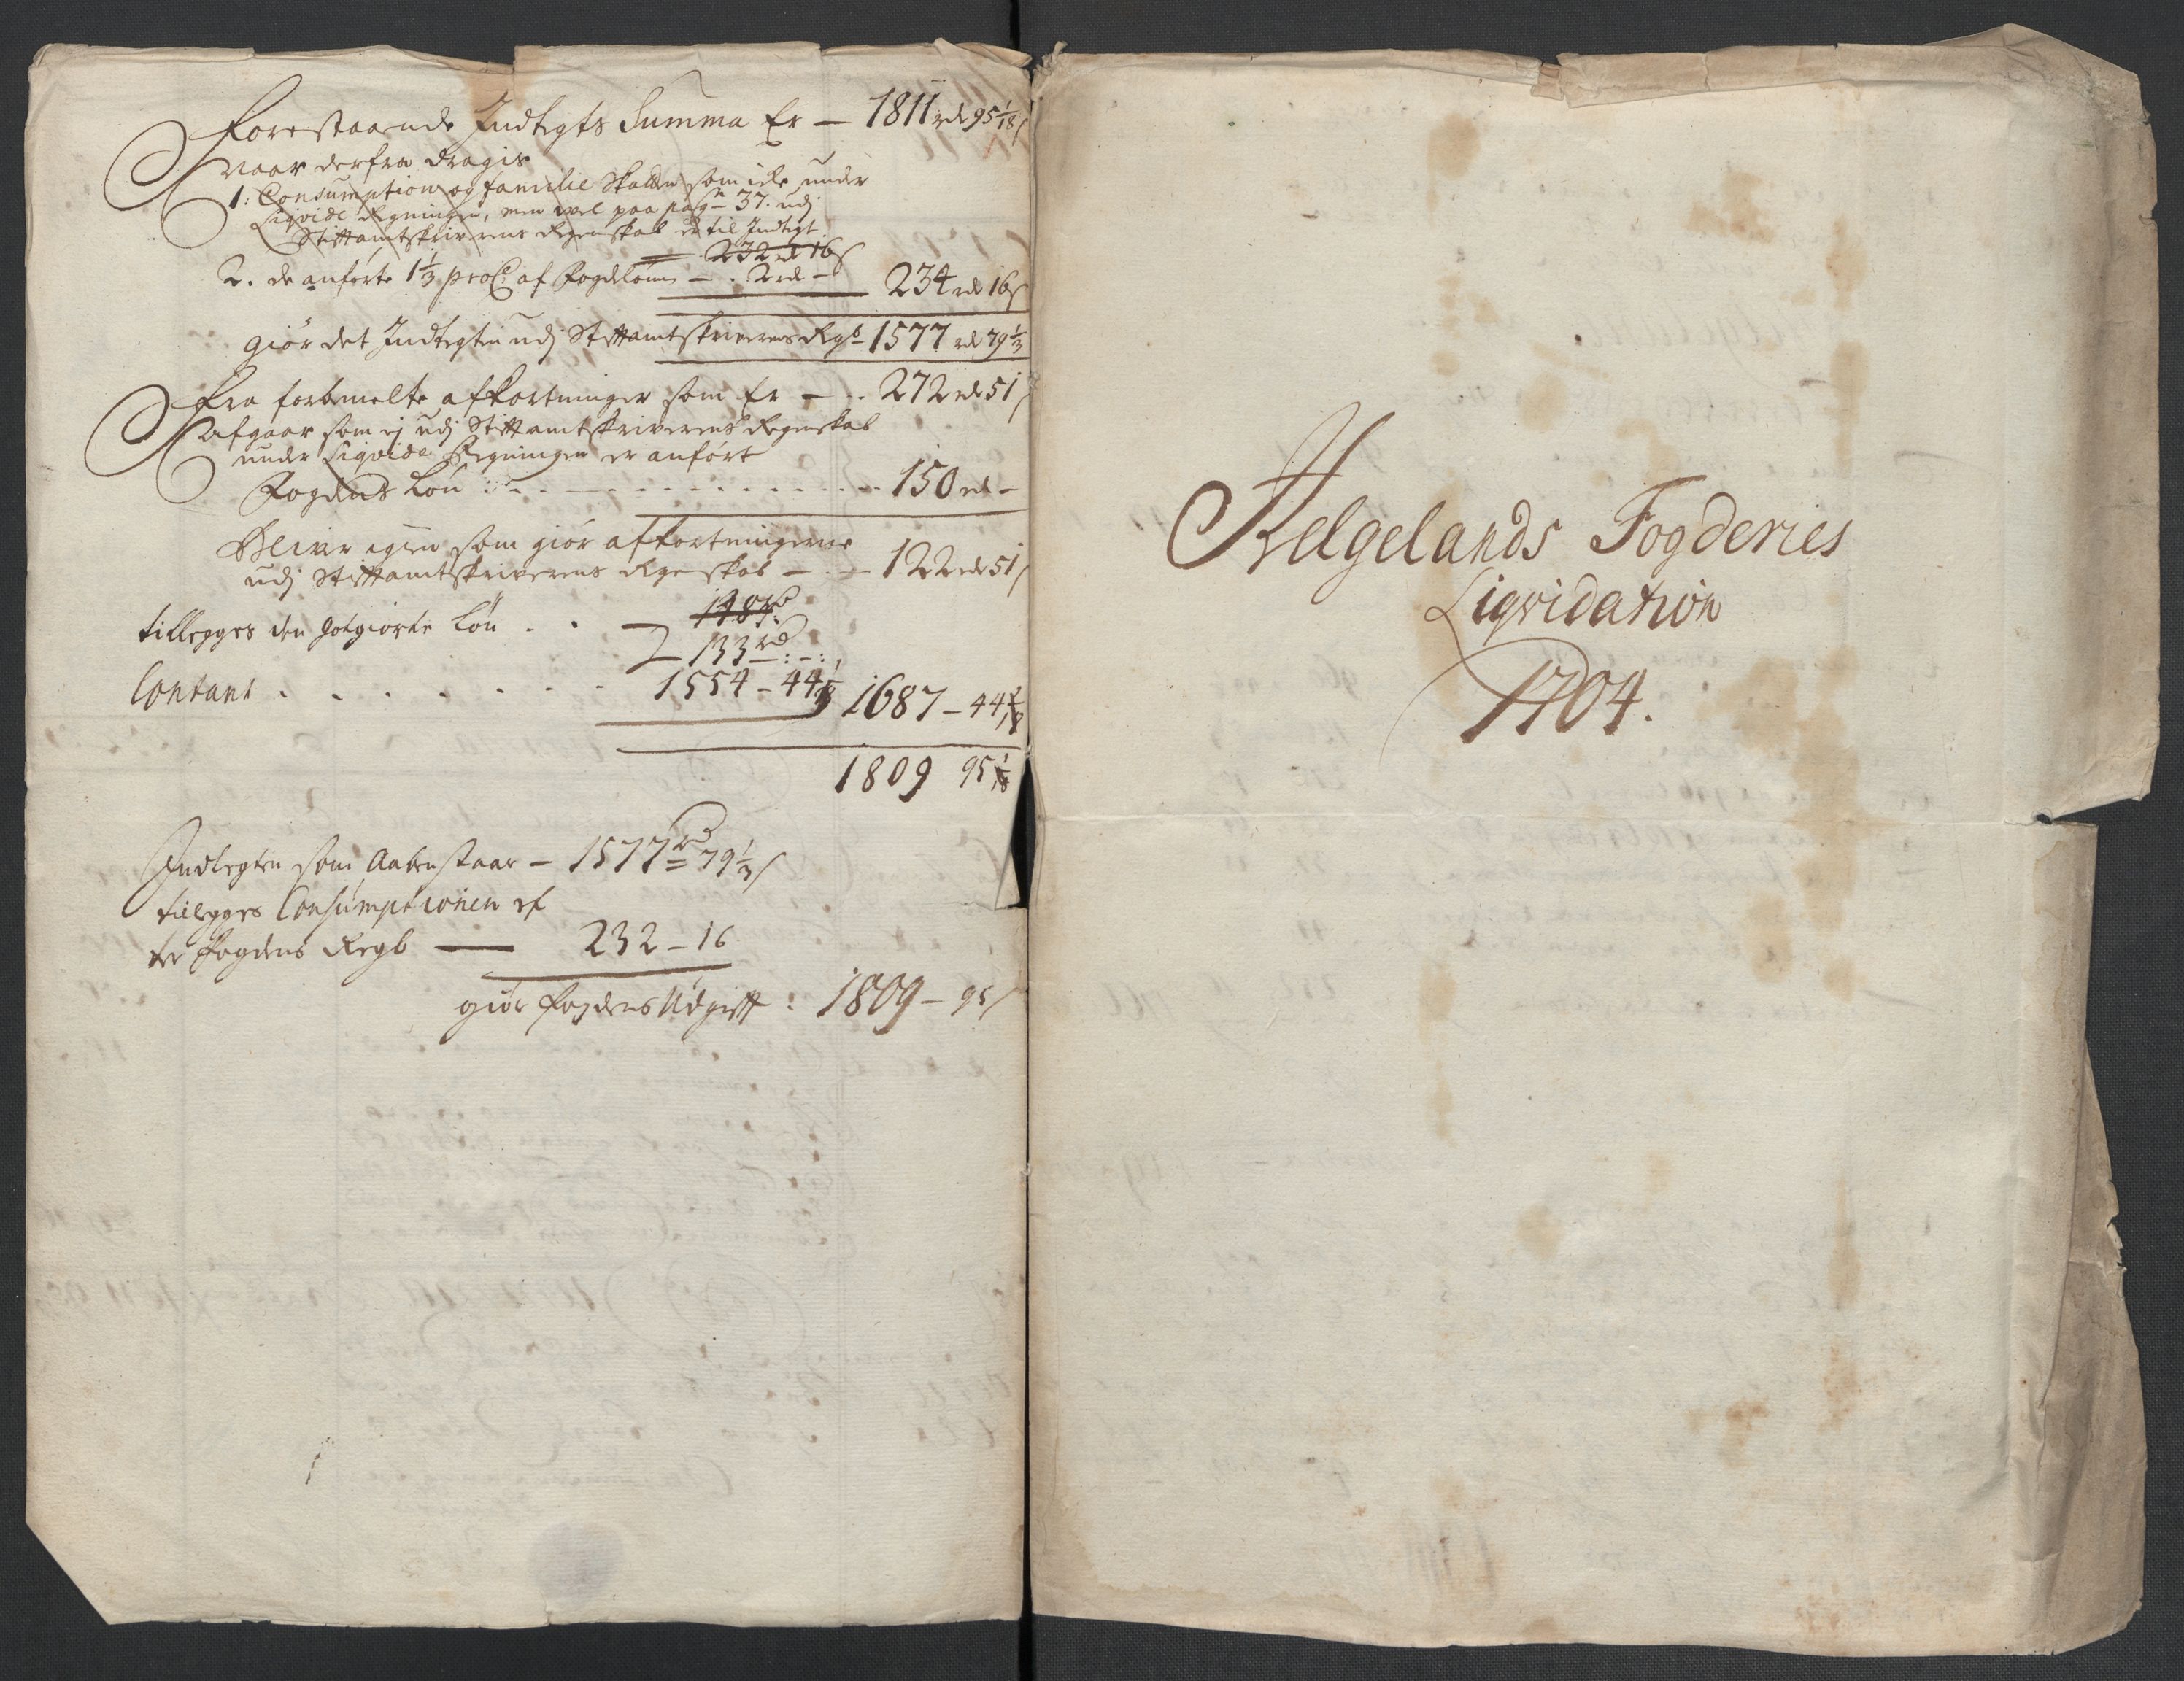 Forestaaende Indtegts Summa Er — 1811 rdr 95 1/18 s
naar derfra dragis
1: Consumption og familie Skatten som icke under
Liqvide Regningen, men vel paa pag 37. udj
Stiftamtskriverens Regenskab er til Indtegt
232 rd 16 s
2. de anførte 1 1/3 proC: af Fogdelønn — . 2 rd — 234 rdr 16 s
giør det Indtegten udj Stiftamtskriverens Regb 1577 rdr 79 1/3
Fra forbemelte afkortninger som Er — . . 272 rdr 51 s
afgaar som ej udj Stiftamtskriverens Regenskab
under Liqvide Regningen er anført
Fogdens Løn . . — . . . . . . . . . 150 rd —
Bliver igien som giør afkortningerne
udj Stiftamtskriverens Regenskab — . — 122 rdr 51 s
148 rd
tillegges den Gotgiorte Løn . . — 133 rd — : — :
Contant . . . . . . . 1554 – 44 1687 – 44
1809 95 1/18
Indtegten som Aabenstaar — 1577 rd 79 1/3 s
tillegges Consumptionen ef
ter fogdens Regb — 232 – 16
giør fogdens Udgifft : 1809 – 95 s
Helgelands Fogderies
Liqvidation
1704.